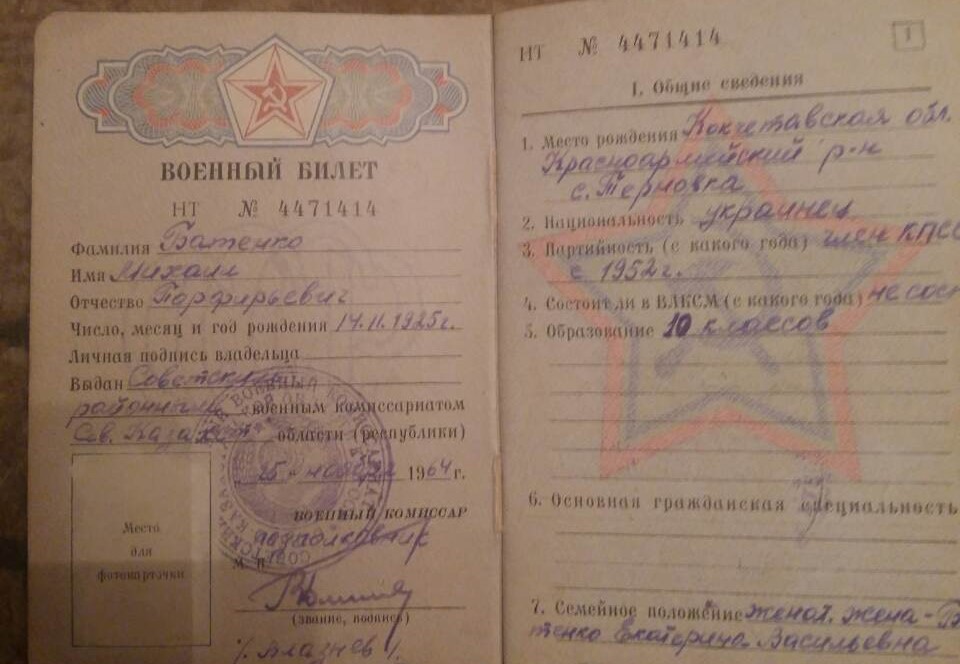 ВОЕННЫЙ БИЛЕТ
НТ № 4471414
Фамилия Батенко
Имя Михаил
Отчество Порфирьевич
Число, месяц и год рождения 14.11.1925г.
Личная подпись владельца
Выдан Советским
районным военным комиссариатом
Сев. Казахст. области (республики)
25 ноября 1964 г.
ВОЕННЫЙ КОМИССАР
подполковник
М. П.
(звание, подпись)
Место
для
фотокарточки
НТ № 4471414
1
I. Общие сведения
1. Место рождения Кокчетавская обл.
Красноармейский р-н
с. Терновка
2. Национальность украинец
3. Партийность (с какого года) член КПСС
с 1952г.
4. Состоит ли в ВЛКСМ (с какого года) не сост
5. Образование 10 классов
6. Основная гражданская специальность
7. Семейное положение женат. жена - Б
тенко Екатерина Васильевна